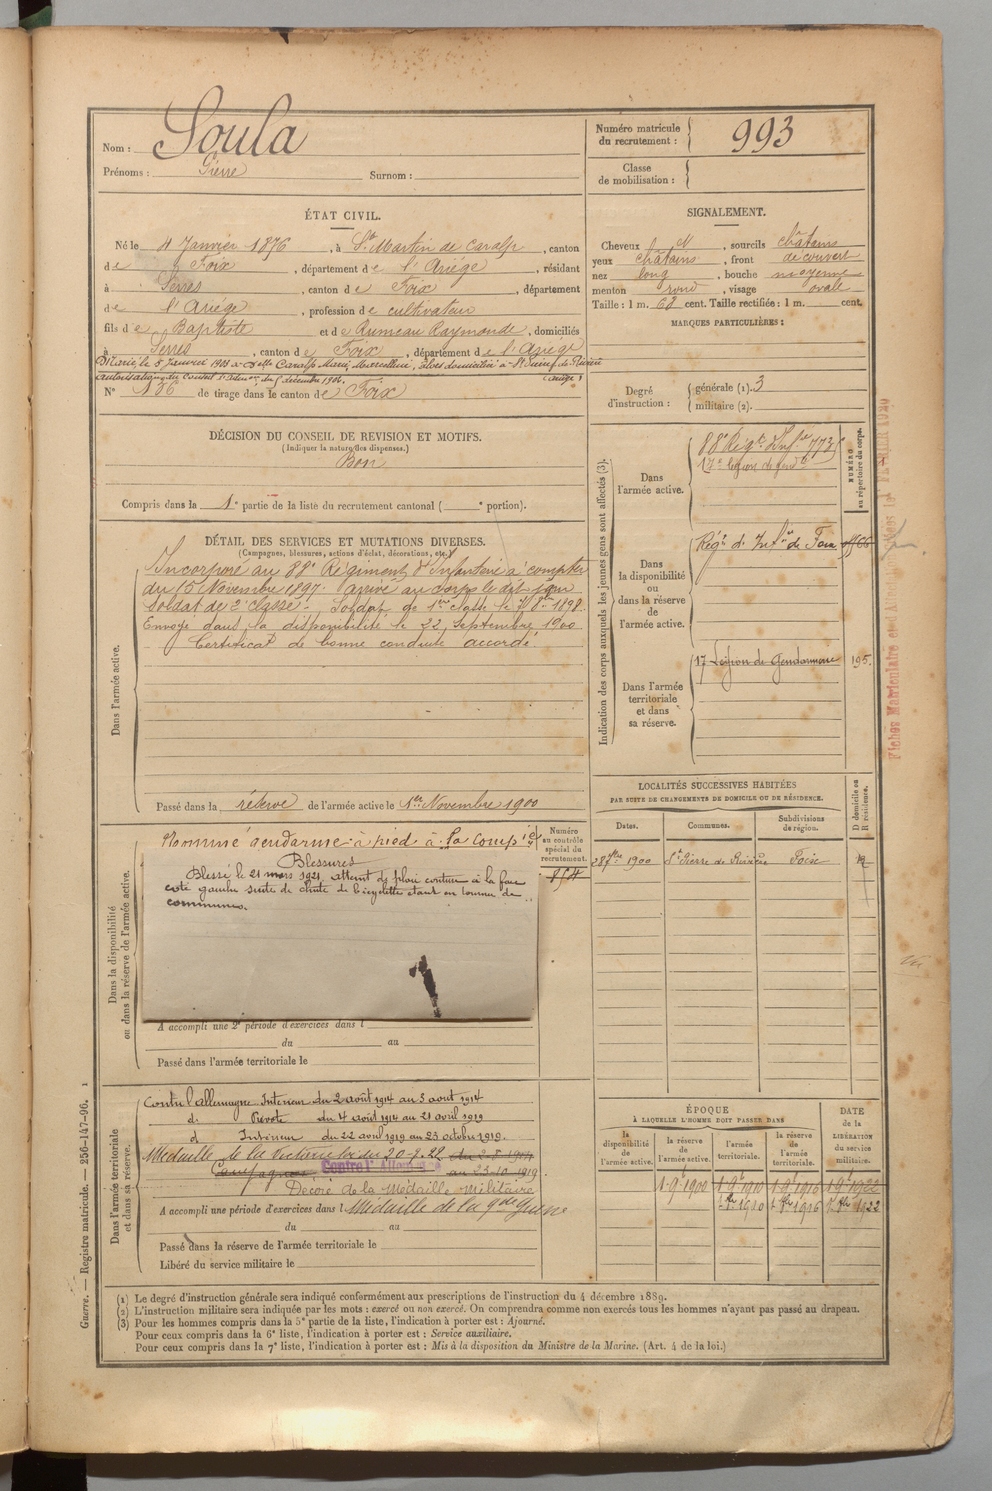 Nom : Soula
Prénoms : Pierre Surnom :
Numéro matricule du recrutement : 993
Classe de mobilisation :
ÉTAT CIVIL.
Né le 4 Janvier 1876, à St Martin de Caralp, canton
de Foix, département de l'Ariège, résidant
à Serres, canton de Foix, département
de l'Ariège, profession de cultivateur
fils de Baptiste et de Rumeau Raymonde, domiciliés
à Serres, canton de Foix, département de l'Ariège
Marié le 5 Janvier 1903 à Delle Caralp Marie, Marcelline, alors domiciliée à St Pierre de Rivière
autorisation du Conseil d'adm on du 5 décembre 1902. (Ariège)
N° 136 de tirage dans le canton de Foix
SIGNALEMENT.
Cheveux et, sourcils châtains
yeux châtains, front découvert
nez long, bouche moyenne
menton rond, visage ovale
Taille : 1 m. 68 cent. Taille rectifiée : 1 m. cent.
MARQUES PARTICULIÈRES :
Degré d'instruction : générale (1). 3
militaire (2).
DÉCISION DU CONSEIL DE REVISION ET MOTIFS.
(Indiquer la nature des dispenses.)
Bon
Compris dans la 1e partie de la liste du recrutement cantonal ( e portion).
DÉTAIL DES SERVICES ET MUTATIONS DIVERSES.
(Campagnes, blessures, actions d'éclat, décorations, etc.)
Dans l'armée active.
Incorporé au 88e Régiment d'Infanterie à compter
du 15 Novembre 1897. Arrivé au corps le dit jour
Soldat de 2e classe. Soldat de 1re classe le 8bre 1898.
Envoyé dans la disponibilité le 22 Septembre 1900
Certificat de bonne conduite accordé.
Passé dans la réserve de l'armée active le 1er Novembre 1900
Indication des corps auxquels les jeunes gens sont affectés (3).
NUMÉRO au répertoire du corps.
Dans l'armée active.
88e Régt Infie 7735
17e légion de gendie
Dans la disponibilité ou dans la réserve de l'armée active.
Régt d'Infie de Foix
Dans l'armée territoriale et dans sa réserve.
17 Légion de Gendarmerie 195.
LOCALITÉS SUCCESSIVES HABITÉES
PAR SUITE DE CHANGEMENTS DE DOMICILE OU DE RÉSIDENCE.
Dates. Communes. Subdivisions de région. D domicile ou R résidence.
28 7bre 1900 St Pierre de Rivière Foix R
Dans la disponibilité ou dans la réserve de l'armée active.
Nommé gendarme à pied à la Compie
Numéro au contrôle spécial du recrutement.
Blessures
Blessé le 21 mars 1921, atteint de plaie contuse à la face
coté gauche suite de chute de bicyclette étant en tournée de
communes.
A accompli une 2e période d'exercices dans l
du au
Passé dans l'armée territoriale le
Dans l'armée territoriale et dans sa réserve.
Contre l'Allemagne Intérieur du 2 août 1914 au 3 aout 1914
d. Prévôté du 4 août 1914 au 21 avril 1919
d Intérieur du 22 avril 1919 au 23 octobre 1919.
Médaille de la Victoire loi du 20-7-22 du 2-8-1914
Campagnes Contre l'Allemagne au 23-10-1919
Décoré de la Médaille Militaire
A accompli une période d'exercices dans l Médaille de la gde Guerre
du au
Passé dans la réserve de l'armée territoriale le
Libéré du service militaire le
ÉPOQUE
À LAQUELLE L'HOMME DOIT PASSER DANS
DATE de la LIBÉRATION du service militaire.
la disponibilité de l'armée active. la réserve de l'armée active. l'armée territoriale. la réserve de l'armée territoriale.
1 9 1900 1 9 1910 1 9 1916 1 9 1922
1 8bre 1910 1 8bre 1916 1 8bre 1922
(1) Le degré d'instruction générale sera indiqué conformément aux prescriptions de l'instruction du 4 décembre 1889.
(2) L'instruction militaire sera indiquée par les mots : exercé ou non exercé. On comprendra comme non exercés tous les hommes n'ayant pas passé au drapeau.
(3) Pour les hommes compris dans la 5e partie de la liste, l'indication à porter est : Ajourné.
Pour ceux compris dans la 6e liste, l'indication à porter est : Service auxiliaire.
Pour ceux compris dans la 7e liste, l'indication à porter est : Mis à la disposition du Ministre de la Marine. (Art. 4 de la loi.)
Guerre. — Registre matricule. — 256-147-96. 1